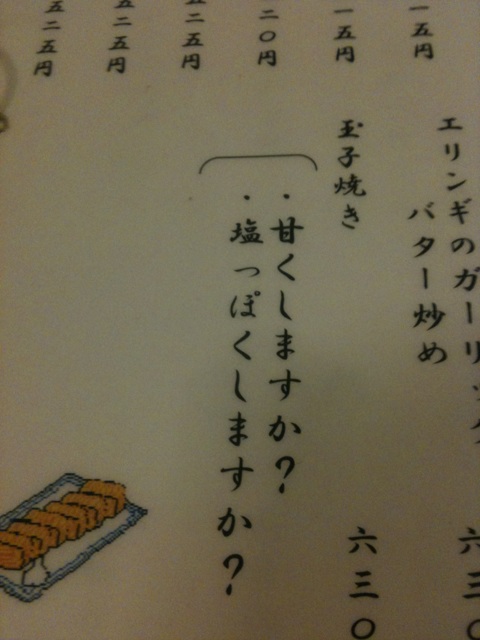 一五円
一五円
二〇円
五二五円
五二五円
五二五円
エリンギのガーリック
バター炒め
六三〇
玉子焼き
六三〇
・甘くしますか？
・塩っぽくしますか？